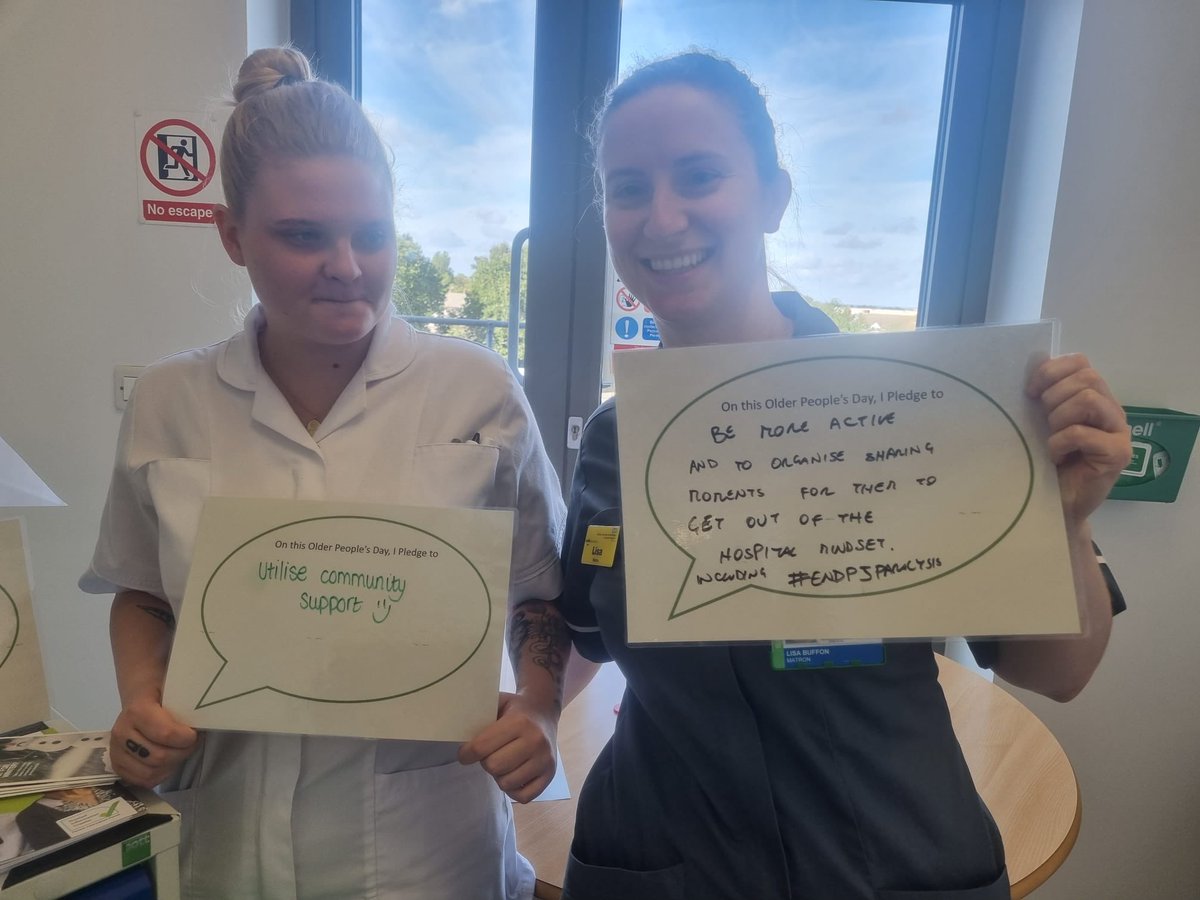 No escape
On this Older People's Day, I Pledge to
Utilise community
support
On this Older People's Day, I Pledge to
BE MORE ACTIVE
AND TO ORGANISE SHARING
MOMENTS FOR THEM TO
GET OUT OF THE
HOSPITAL MINDSET.
INCLUDING #ENDPJPARALYSIS
Lisa
LISA BUFFON
MATRON
ell